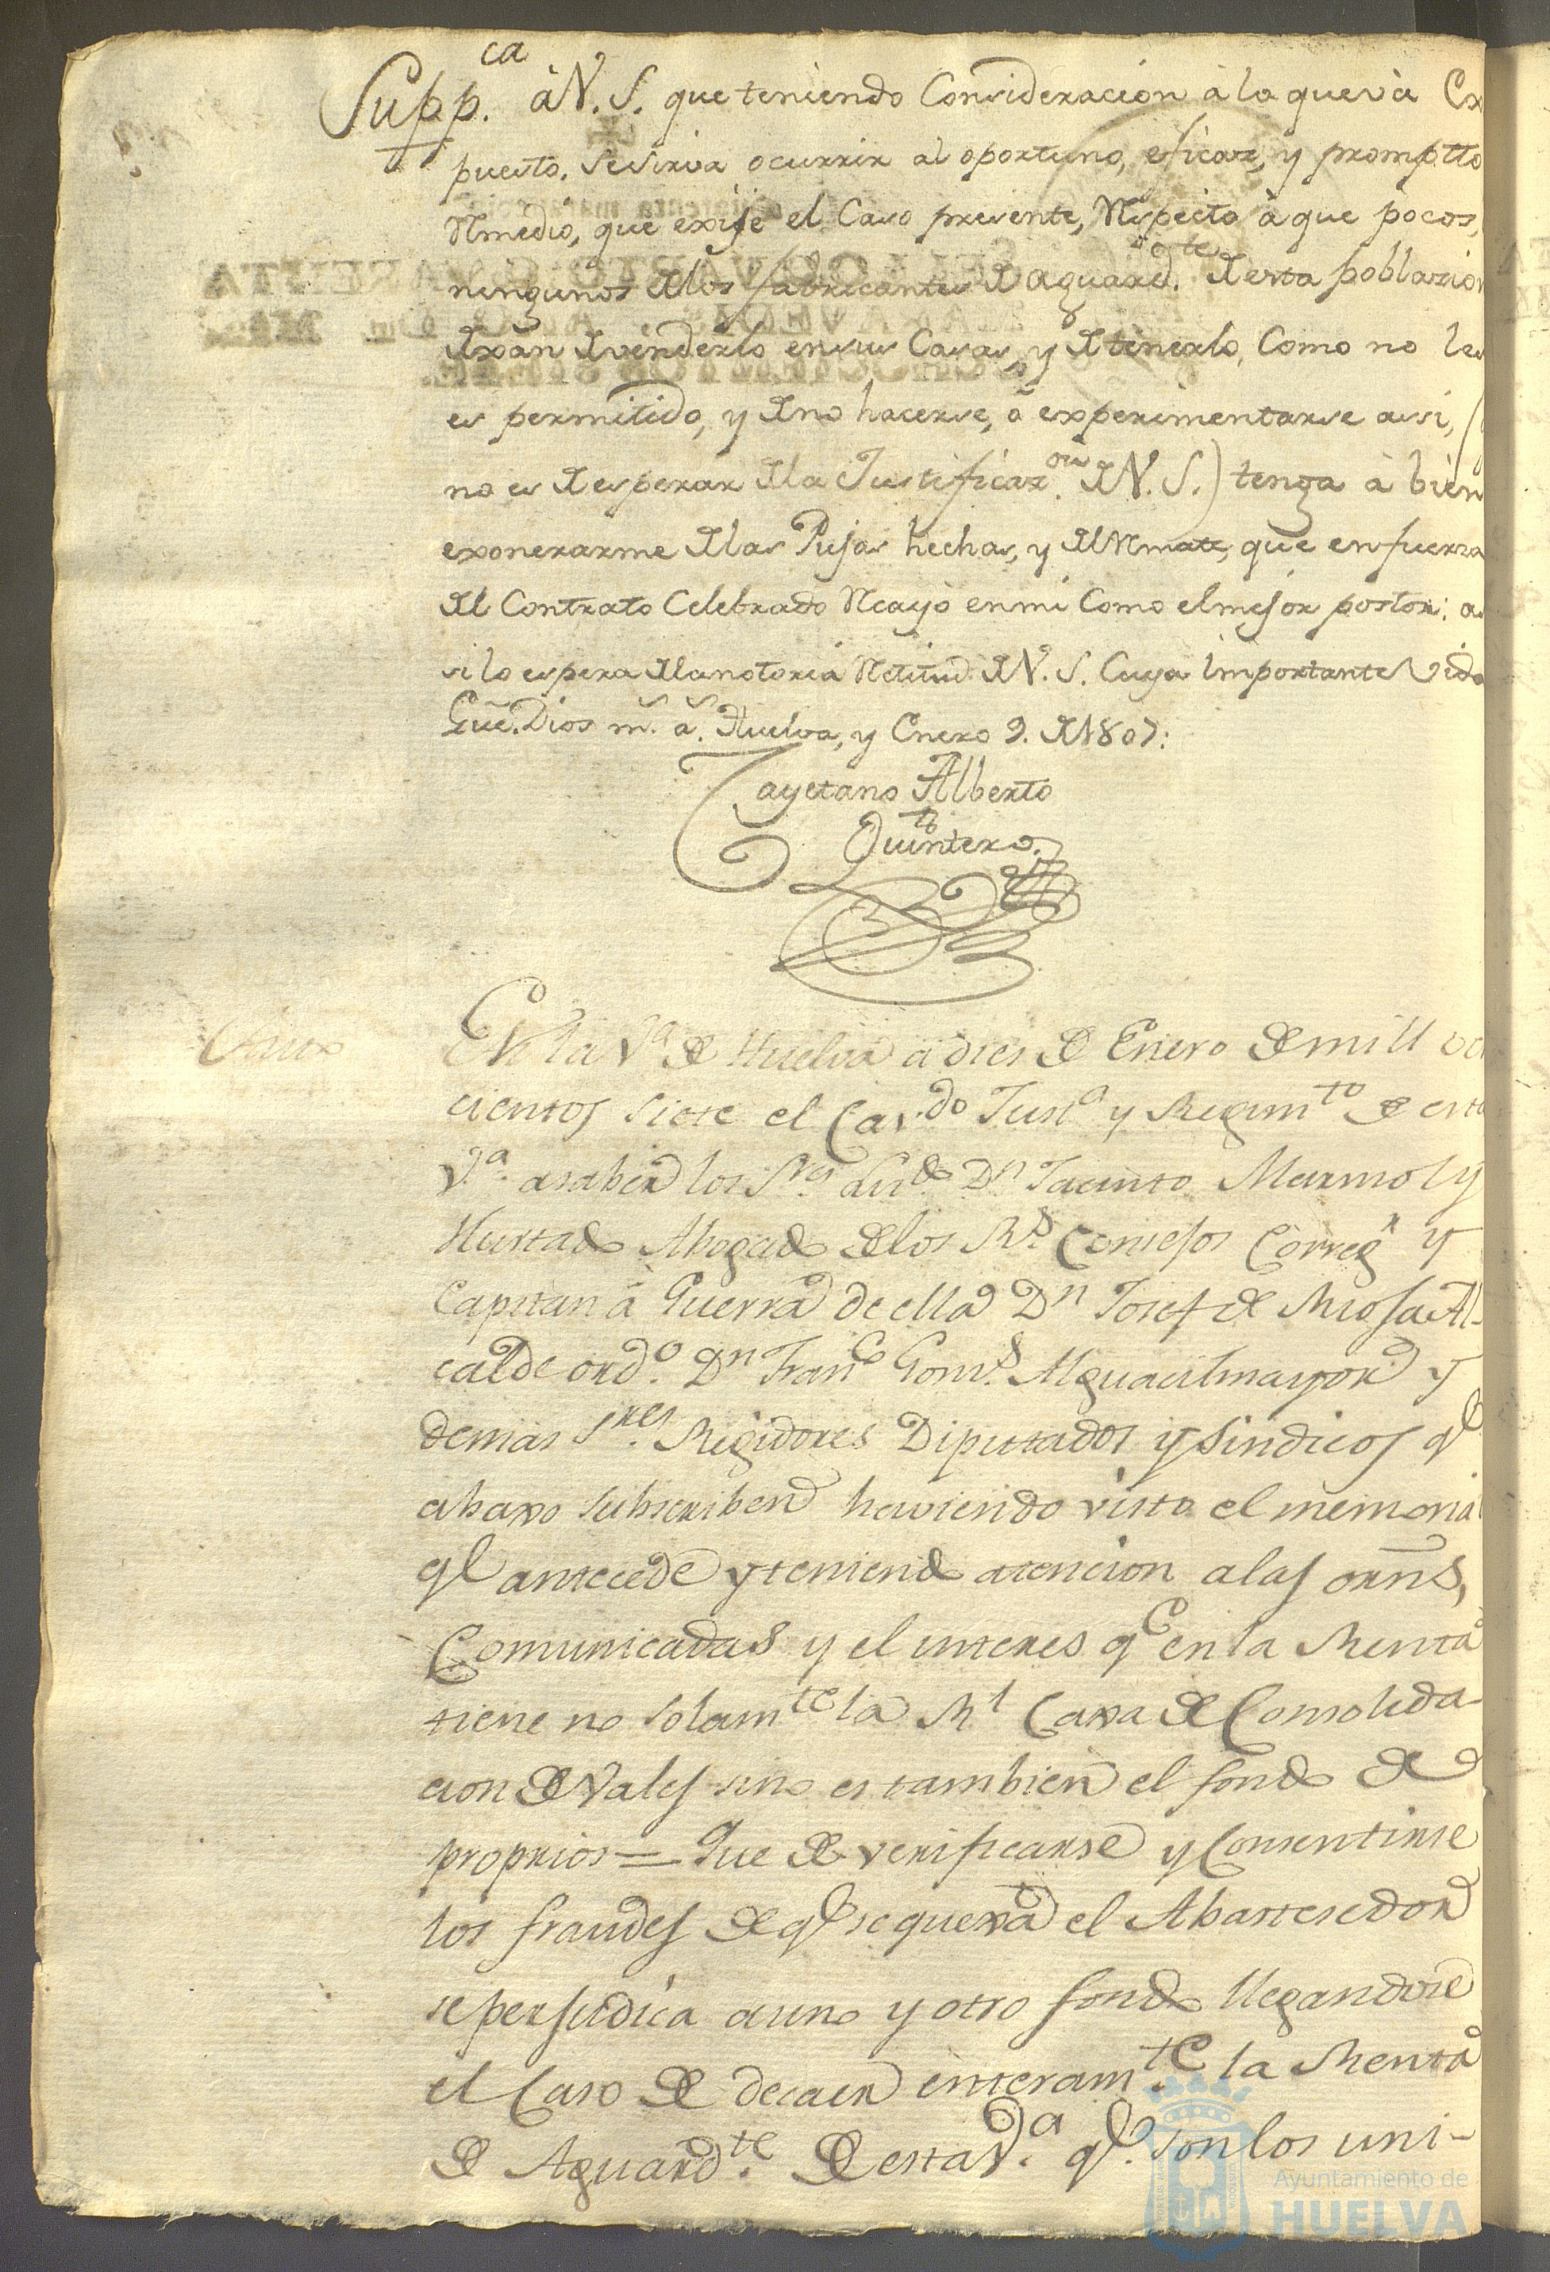 Supp.ca à V. S. que teniendo Consideracion à la queva Ex
puesto. se sirva ocurrir al oportuno, eficaz, y promptto
Remedio, que exije el Caso presente, Respecto à que pocos,
ningunos de los fabricantes de aguard.te de esta poblazion
dexan de venderlo en sus Casas, y de tenerlo, Como no les
es permitido, y de no hacerse, ò experimentarse assi,
no es de esperar de la Justificaz.on de V. S.) tenga à bien
exonerarme de las Pujas hechas, y del Remate, que en fuerza
del Contrato Celebrado Recayò en mi Como el mejor postor: a
si lo espera de la notoria Retitud de V. S. Cuya importante Vida
Gue. Dios m.s a.s Huelva, y Enero 9. de 1807:
Cayetano Alberto
Quintero.
En la V.a de Huelva a dies de Enero de mill oc
cientos siete el Cav.do Just.a y Regim.to de esta
V.a a saber los S.res Lic.do D.n Jacinto Marmol y
Hurtado Abogado de los R.s Consejos Correg.r y
Capitan à Guerra de ella D.n Josef de Miosa Al-
calde ord.o D.n Fran.co Gom.s Alguacil mayor y
demas S.res Regidores Diputados y Sindicos q.e
abaxo subscriben haviendo visto el memorial
q.e antecede y teniendo atencion a las orns,
Comunicadas y el interes q.e en la Renta
tiene no solam.te la R.l Caxa de Consolida-
cion de Vales sino es tambien el fondo de
proprios = Que de verificarse y Consentirse
los fraudes de q.e se quexa el Abastesedor
se perjudica a uno y otro fondo llegandose
el Caso de decaer enteram.te la Renta
de Aguard.te de esta V.a q.e son los uni-
Ayuntamiento de
HUELVA